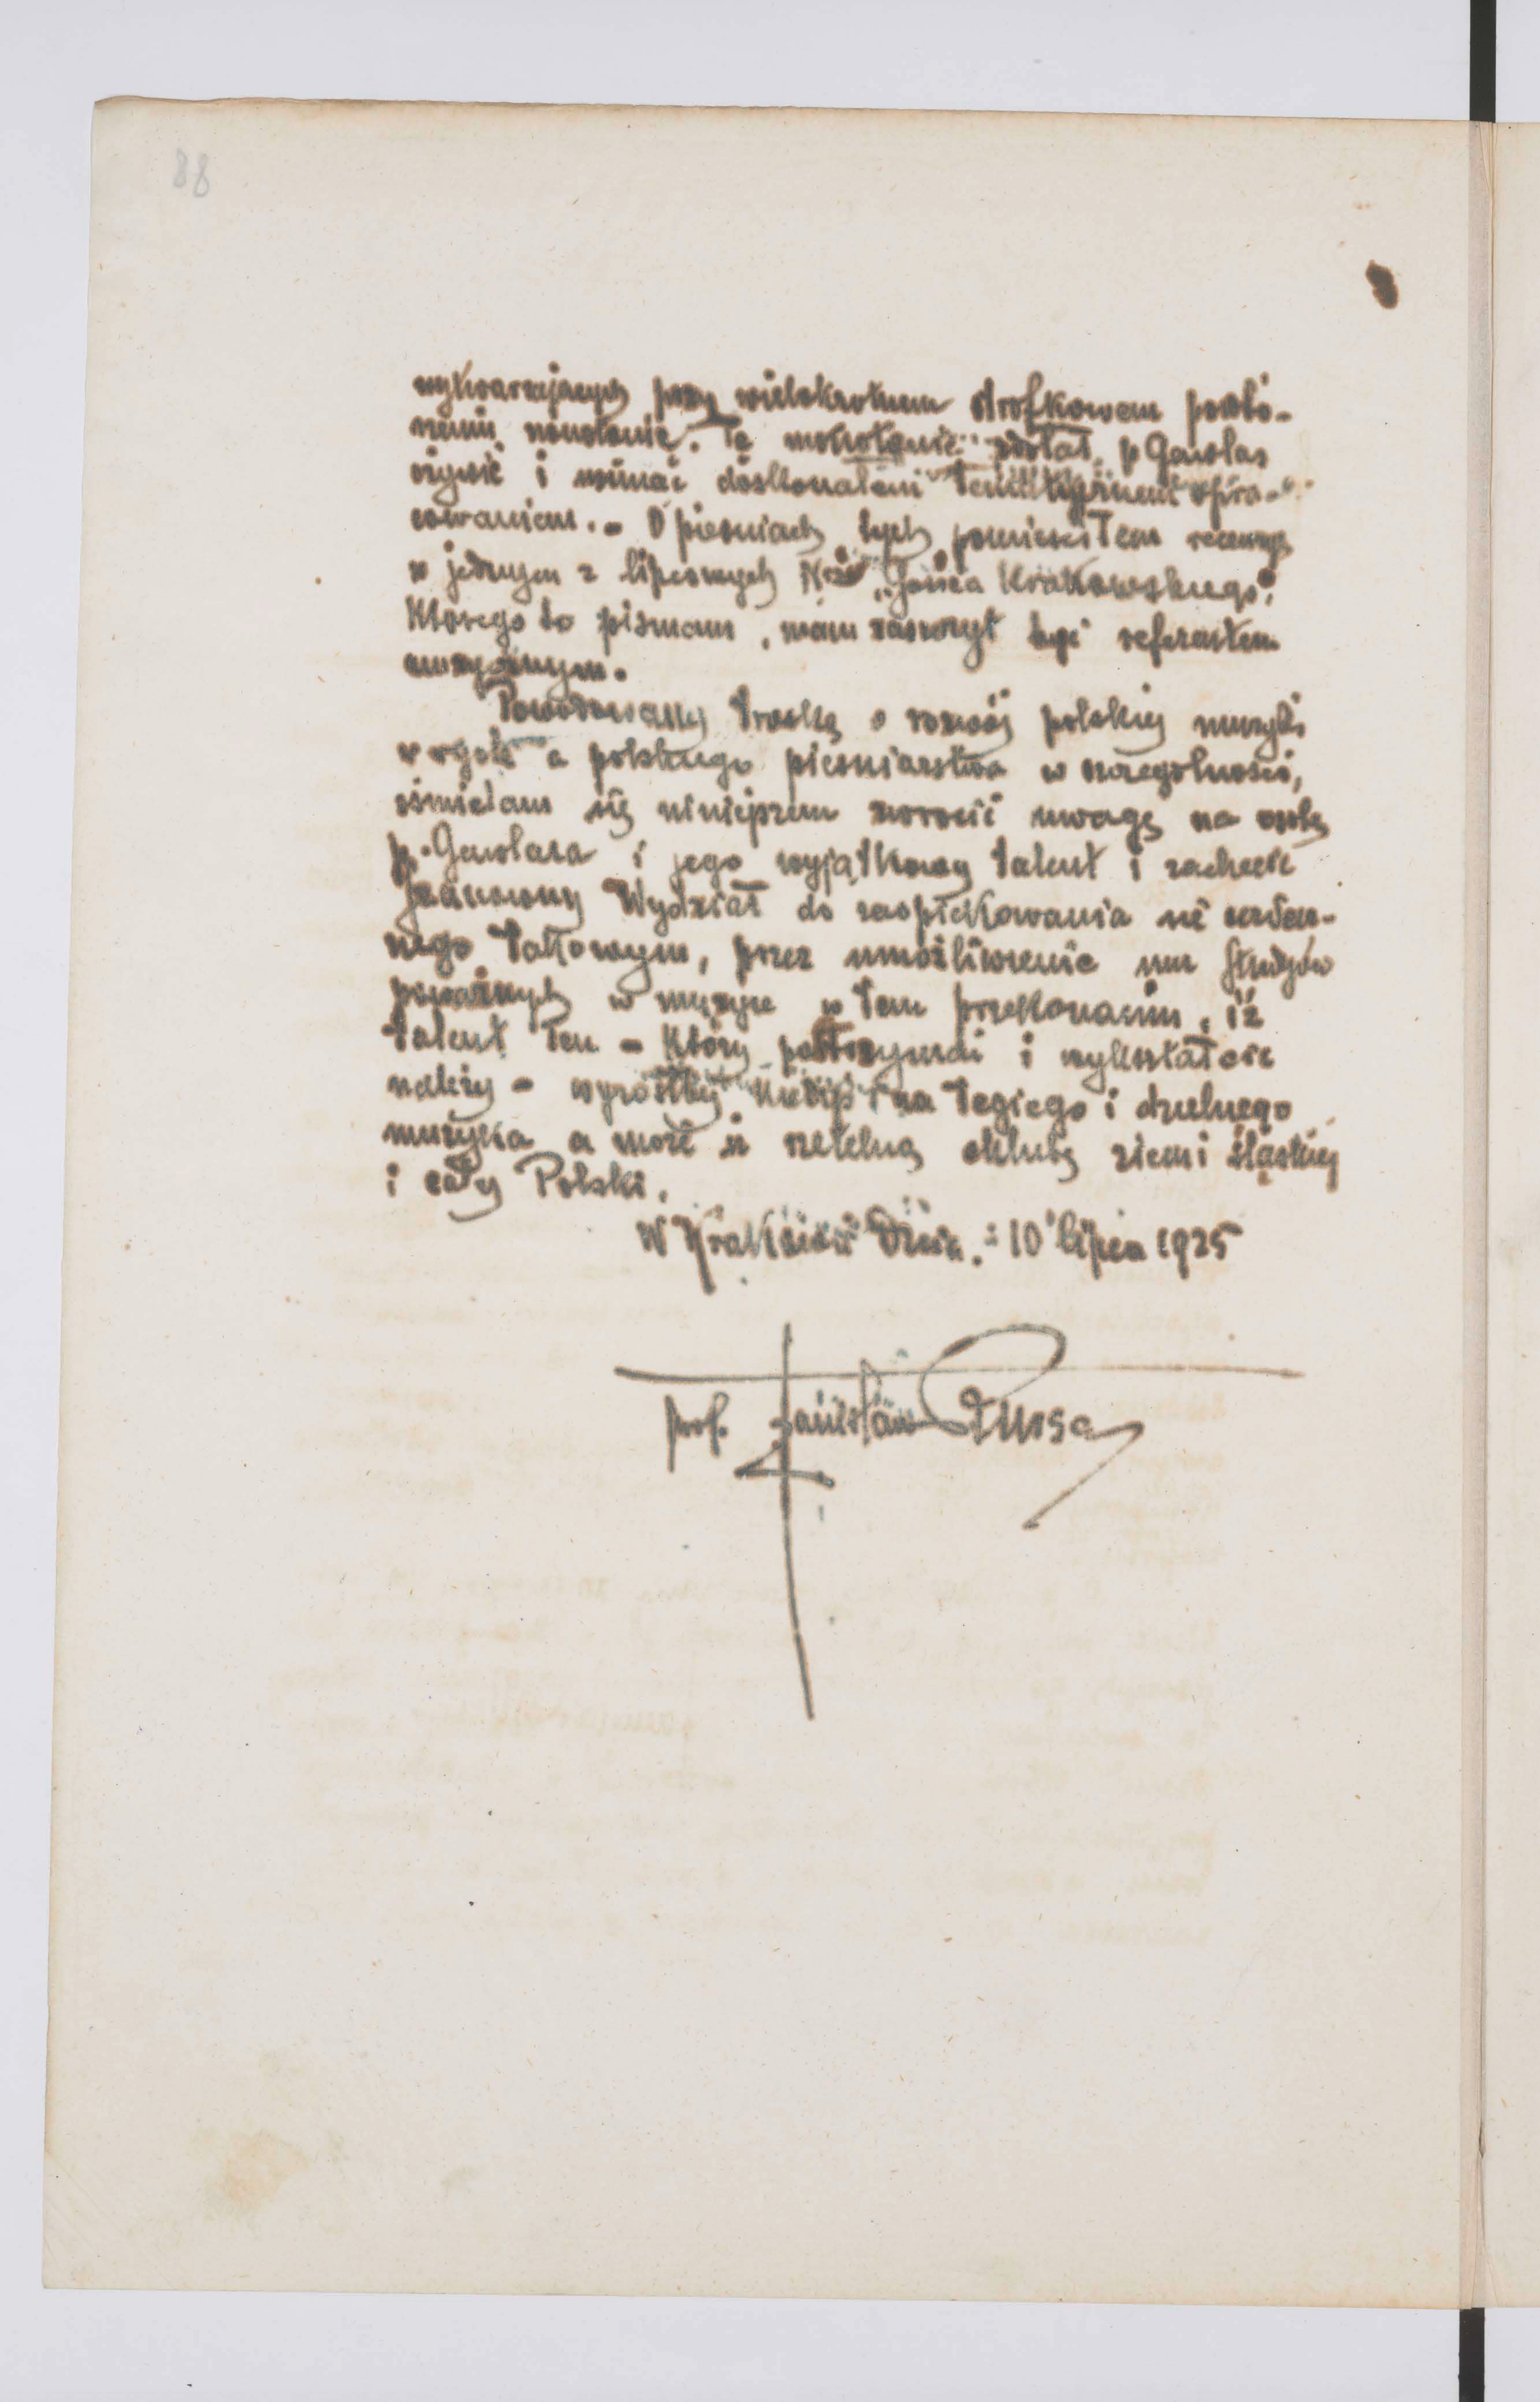 88
wytwarzających przy wielokrotnem strofkowem powtó-
rzeniu monotonię. Tę monotonię zdołał p Gawlas
ożywić i usunąć doskonałem opra-
cowaniem. - O pieśniach tych pomieściłem recenzyę
w jednym z lipcowych Nrów „Gońca Krakowskiego",
którego to pismam, mam zaszczyt być referentem
muzycznym.
Powodowany troską o rozwój polskiej muzyki
w ogóle a polskiego pieśniarstwa w szczególności,
ośmielam się niniejszem zwrócić uwagę na osobę
p. Gawlasa i jego wyjątkowy talent i zachęcić
Szanowny Wydział do zaopiekowania się
nego takowym, przez umożliwienie mu studyów
poważnych w muzyce w tem przekonaniu, iż
talent ten - który podtrzymać i wykształcić
należy - wyrósłby kiedyś na tęgiego i dzielnego
muzyka a może i rzetelną chlubę ziemi śląskiej
i całej Polski.
W Krakowie dnia. 10 lipca 1925
prof. Stanisław Bursa